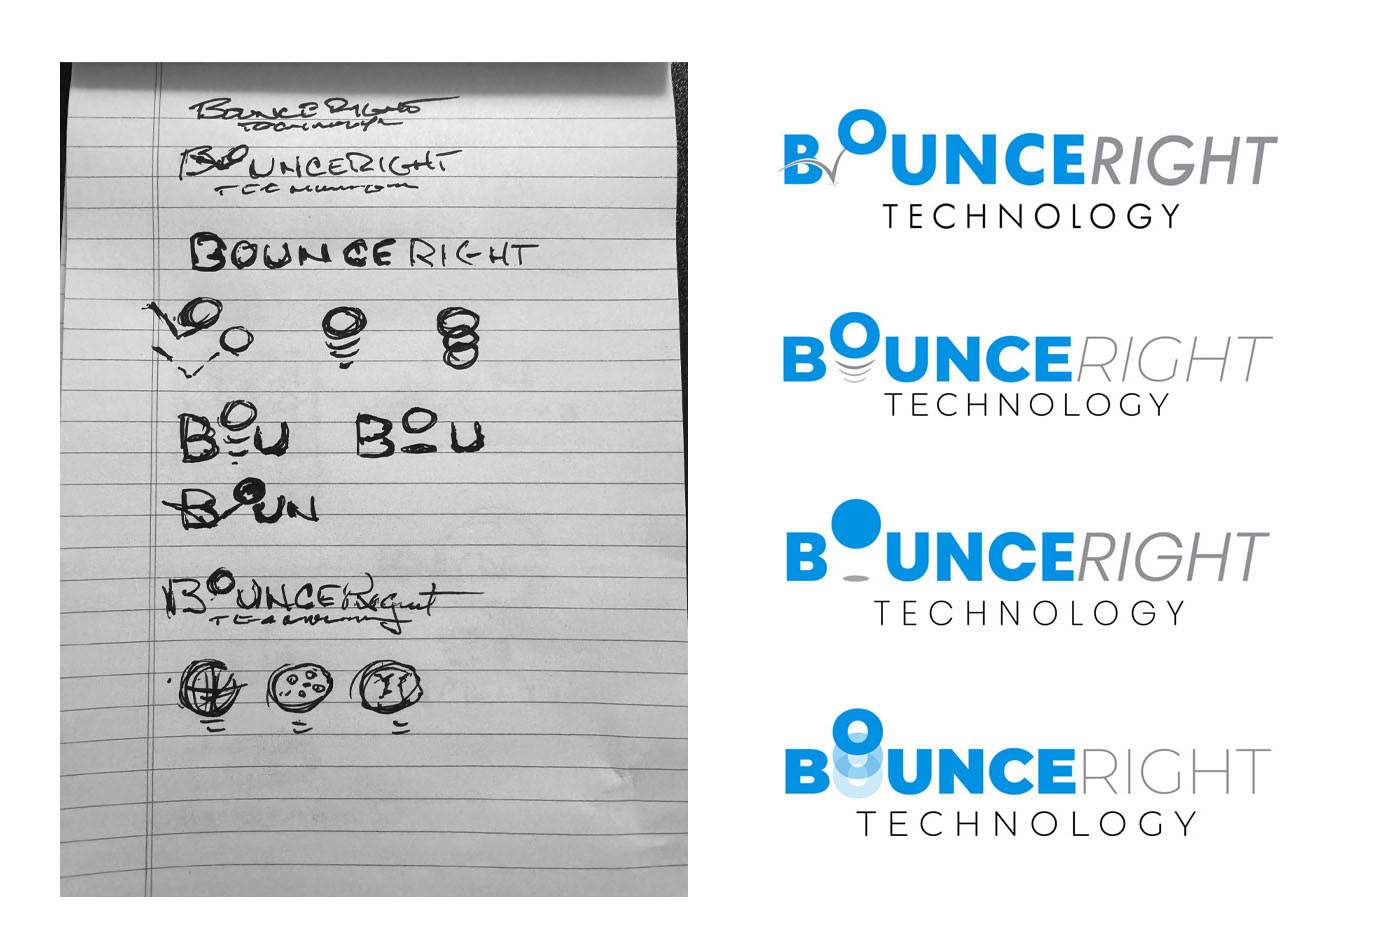 BOUNCE RIGHT
TECHNOLOGY
BOUNCERIGHT
TECHNOLOGY
BOUNCE RIGHT
BOU BOU
BOUN
BOUNCE Right
TECHNOLOGY
BOUNCERIGHT
TECHNOLOGY
BOUNCERIGHT
TECHNOLOGY
BOUNCERIGHT
TECHNOLOGY
BOUNCERIGHT
TECHNOLOGY